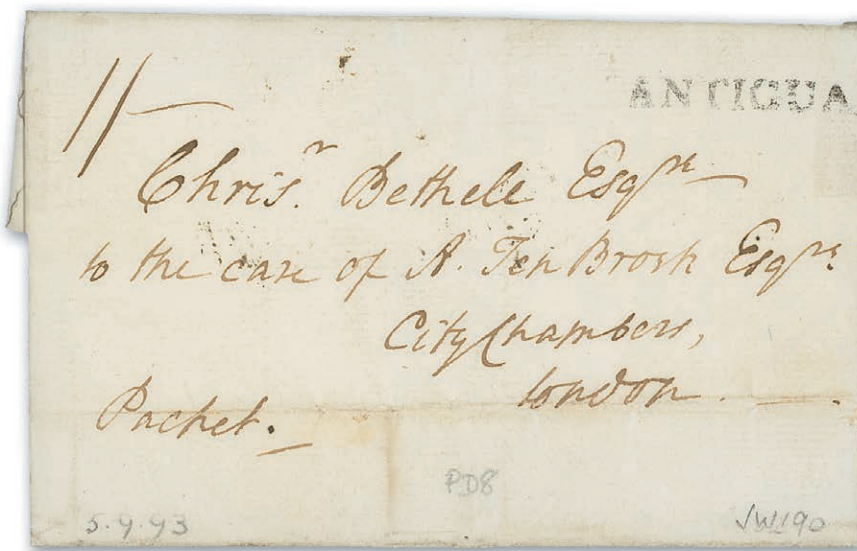 1/–
ANTIGUA
Chrisr. Bethele Esqre
to the care of A. Ten Broek Esqre.
City Chambers,
London.
Packet.
PD8
5.9.93